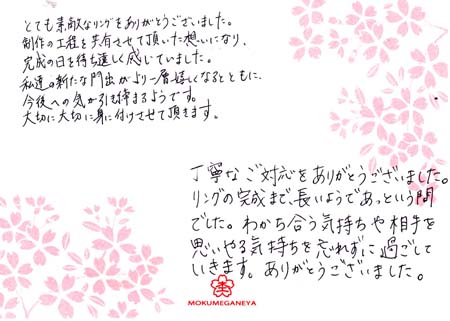 とても素敵なリングをありがとうございました。
制作の工程を共有させて頂いた想いになり、
完成の日を待ち遠しく感じていました。
私達の新たな門出がより一層嬉しくなるとともに、
今後への気が引き締まるようです。
大切に大切に身に付けさせて頂きます。
丁寧なご対応をありがとうございました。
リングの完成まで、長いようであっという間
でした。わかち合う気持ちや相手を
思いやる気持ちを忘れずに過ごして
いきます。ありがとうございました。
MOKUMEGANEYA